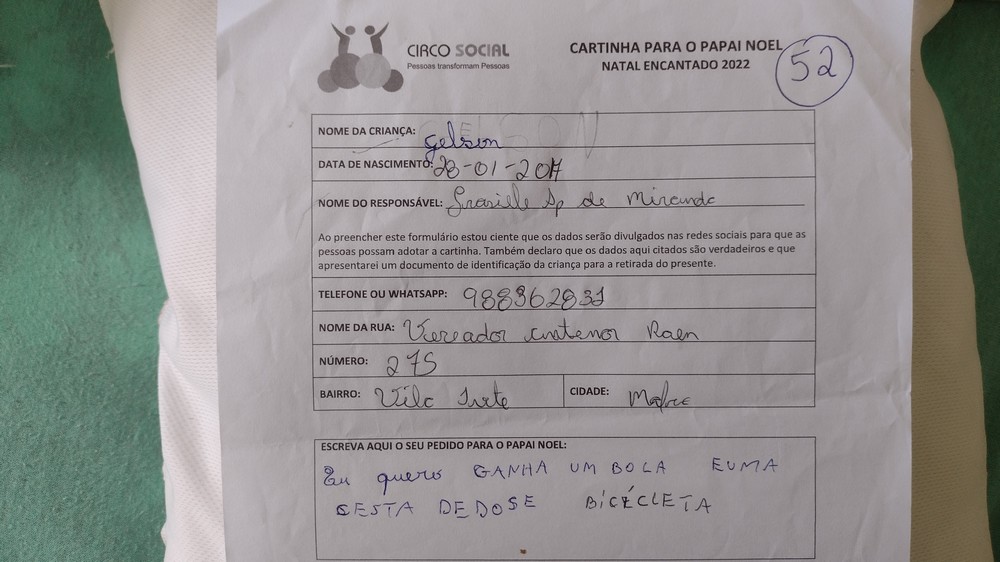 CIRCO SOCIAL
Pessoas transformam Pessoas
CARTINHA PARA O PAPAI NOEL
NATAL ENCANTADO 2022
52
NOME DA CRIANÇA: Gelson
DATA DE NASCIMENTO: 28-01-2017
NOME DO RESPONSÁVEL: Grasiele Ap de Miranda
Ao preencher este formulário estou ciente que os dados serão divulgados nas redes sociais para que as
pessoas possam adotar a cartinha. Também declaro que os dados aqui citados são verdadeiros e que
apresentarei um documento de identificação da criança para a retirada do presente.
TELEFONE OU WHATSAPP: 988362831
NOME DA RUA: Vereador Antenor
NÚMERO: 275
BAIRRO: Vila Ivete CIDADE: Mafra
ESCREVA AQUI O SEU PEDIDO PARA O PAPAI NOEL:
Eu quero GANHA UM BOLA EUMA
SESTA DEDOSE BICICLETA